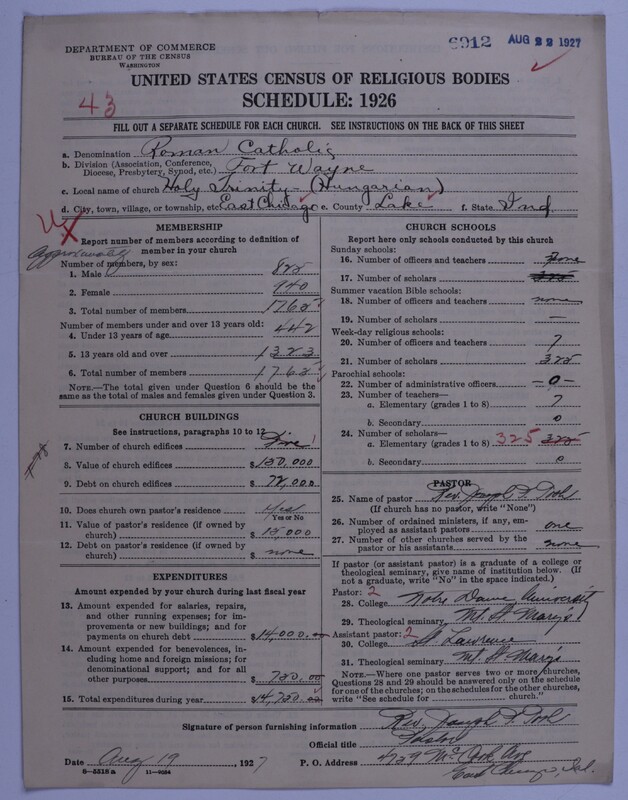 6912 AUG 22 1927
DEPARTMENT OF COMMERCE
BUREAU OF THE CENSUS
WASHINGTON
UNITED STATES CENSUS OF RELIGIOUS BODIES
43
SCHEDULE: 1926
FILL OUT A SEPARATE SCHEDULE FOR EACH CHURCH. SEE INSTRUCTIONS ON THE BACK OF THIS SHEET
a. Denomination Roman Catholic
b. Division (Association, Conference, Diocese, Presbytery, Synod, etc.) Fort Wayne
c. Local name of church Holy Trinity (Hungarian)
d. City, town, village, or township, etc. East Chicago e. County Lake f. State Ind.
MEMBERSHIP
Report number of members according to definition of member in your church
Approximately
Number of members, by sex:
1. Male 825
2. Female 940
3. Total number of members 1765
Number of members under and over 13 years old:
4. Under 13 years of age 442
5. 13 years old and over 1323
6. Total number of members 1765
NOTE.—The total given under Question 6 should be the same as the total of males and females given under Question 3.
CHURCH BUILDINGS
See instructions, paragraphs 10 to 12
7. Number of church edifices 1
8. Value of church edifices $150,000
9. Debt on church edifices $72,000
10. Does church own pastor's residence Yes
Yes or No
11. Value of pastor's residence (if owned by church) $15000
12. Debt on pastor's residence (if owned by church) $ none
EXPENDITURES
Amount expended by your church during last fiscal year
13. Amount expended for salaries, repairs, and other running expenses; for improvements or new buildings; and for payments on church debt $14,000.00
14. Amount expended for benevolences, including home and foreign missions; for denominational support; and for all other purposes $750.00
15. Total expenditures during year $14,750.00
CHURCH SCHOOLS
Report here only schools conducted by this church
Sunday schools:
16. Number of officers and teachers none
17. Number of scholars 325
Summer vacation Bible schools:
18. Number of officers and teachers none
19. Number of scholars —
Week-day religious schools:
20. Number of officers and teachers 7
21. Number of scholars 325
Parochial schools:
22. Number of administrative officers —0—
23. Number of teachers—
a. Elementary (grades 1 to 8) 7
b. Secondary 0
24. Number of scholars—
a. Elementary (grades 1 to 8) 325 325
b. Secondary 0
PASTOR
25. Name of pastor Rev. Joseph F. Toth
(If church has no pastor, write "None")
26. Number of ordained ministers, if any, employed as assistant pastors one
27. Number of other churches served by the pastor or his assistants none
If pastor (or assistant pastor) is a graduate of a college or theological seminary, give name of institution below. (If not a graduate, write "No" in the space indicated.)
Pastor: 2
28. College Notre Dame University
29. Theological seminary Mt. St. Mary's
Assistant pastor: 2
30. College St Lawrence
31. Theological seminary Mt St Mary's
NOTE.—Where one pastor serves two or more churches, Questions 28 and 29 should be answered only on the schedule for one of the churches; on the schedules for the other churches, write "See schedule for ........ church."
Signature of person furnishing information Rev. Joseph F. Toth
Official title Pastor
Date Aug 19, 1927 P. O. Address 4759 McCook Ave
East Chicago, Ind.
8—5318a 11—9034